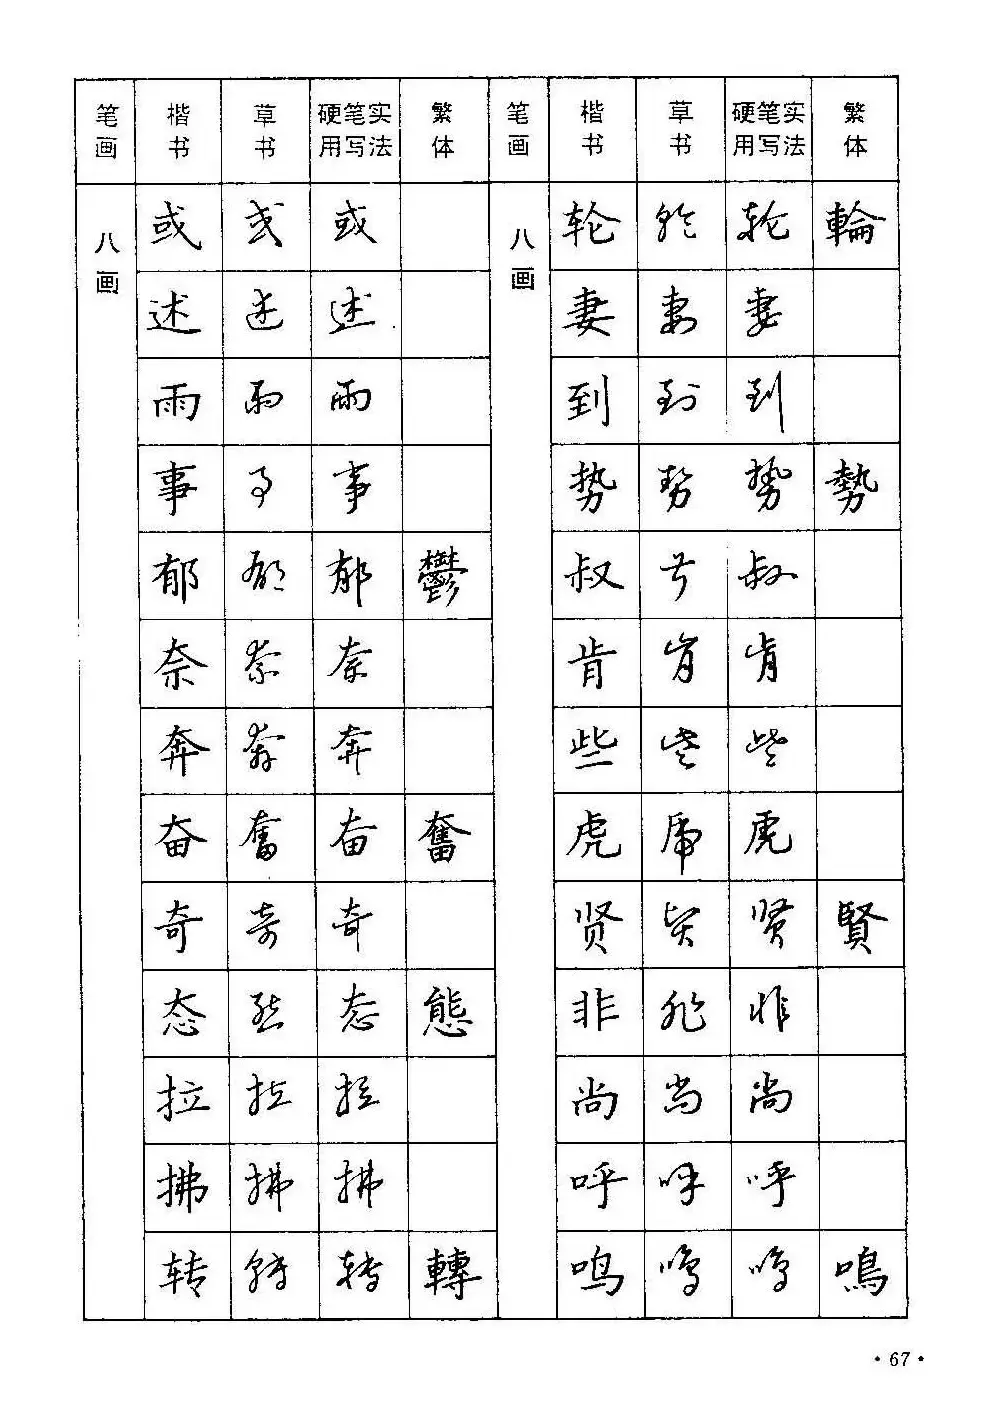 笔画 楷书 草书 硬笔实用写法 繁体 笔画 楷书 草书 硬笔实用写法 繁体
八画 或 或 或 八画 轮 轮 轮 輪
述 述 述 妻 妻 妻
雨 雨 雨 到 到 到
事 事 事 势 势 势 勢
郁 郁 郁 鬱 叔 叔 叔
奈 奈 奈 肯 肯 肯
奔 奔 奔 些 些 些
奋 奮 奋 奮 虎 虎 虎
奇 奇 奇 贤 贤 贤 賢
态 态 态 態 非 非 非
拉 拉 拉 尚 尚 尚
拂 拂 拂 呼 呼 呼
转 转 转 轉 鸣 鸣 鸣 鳴
·67·